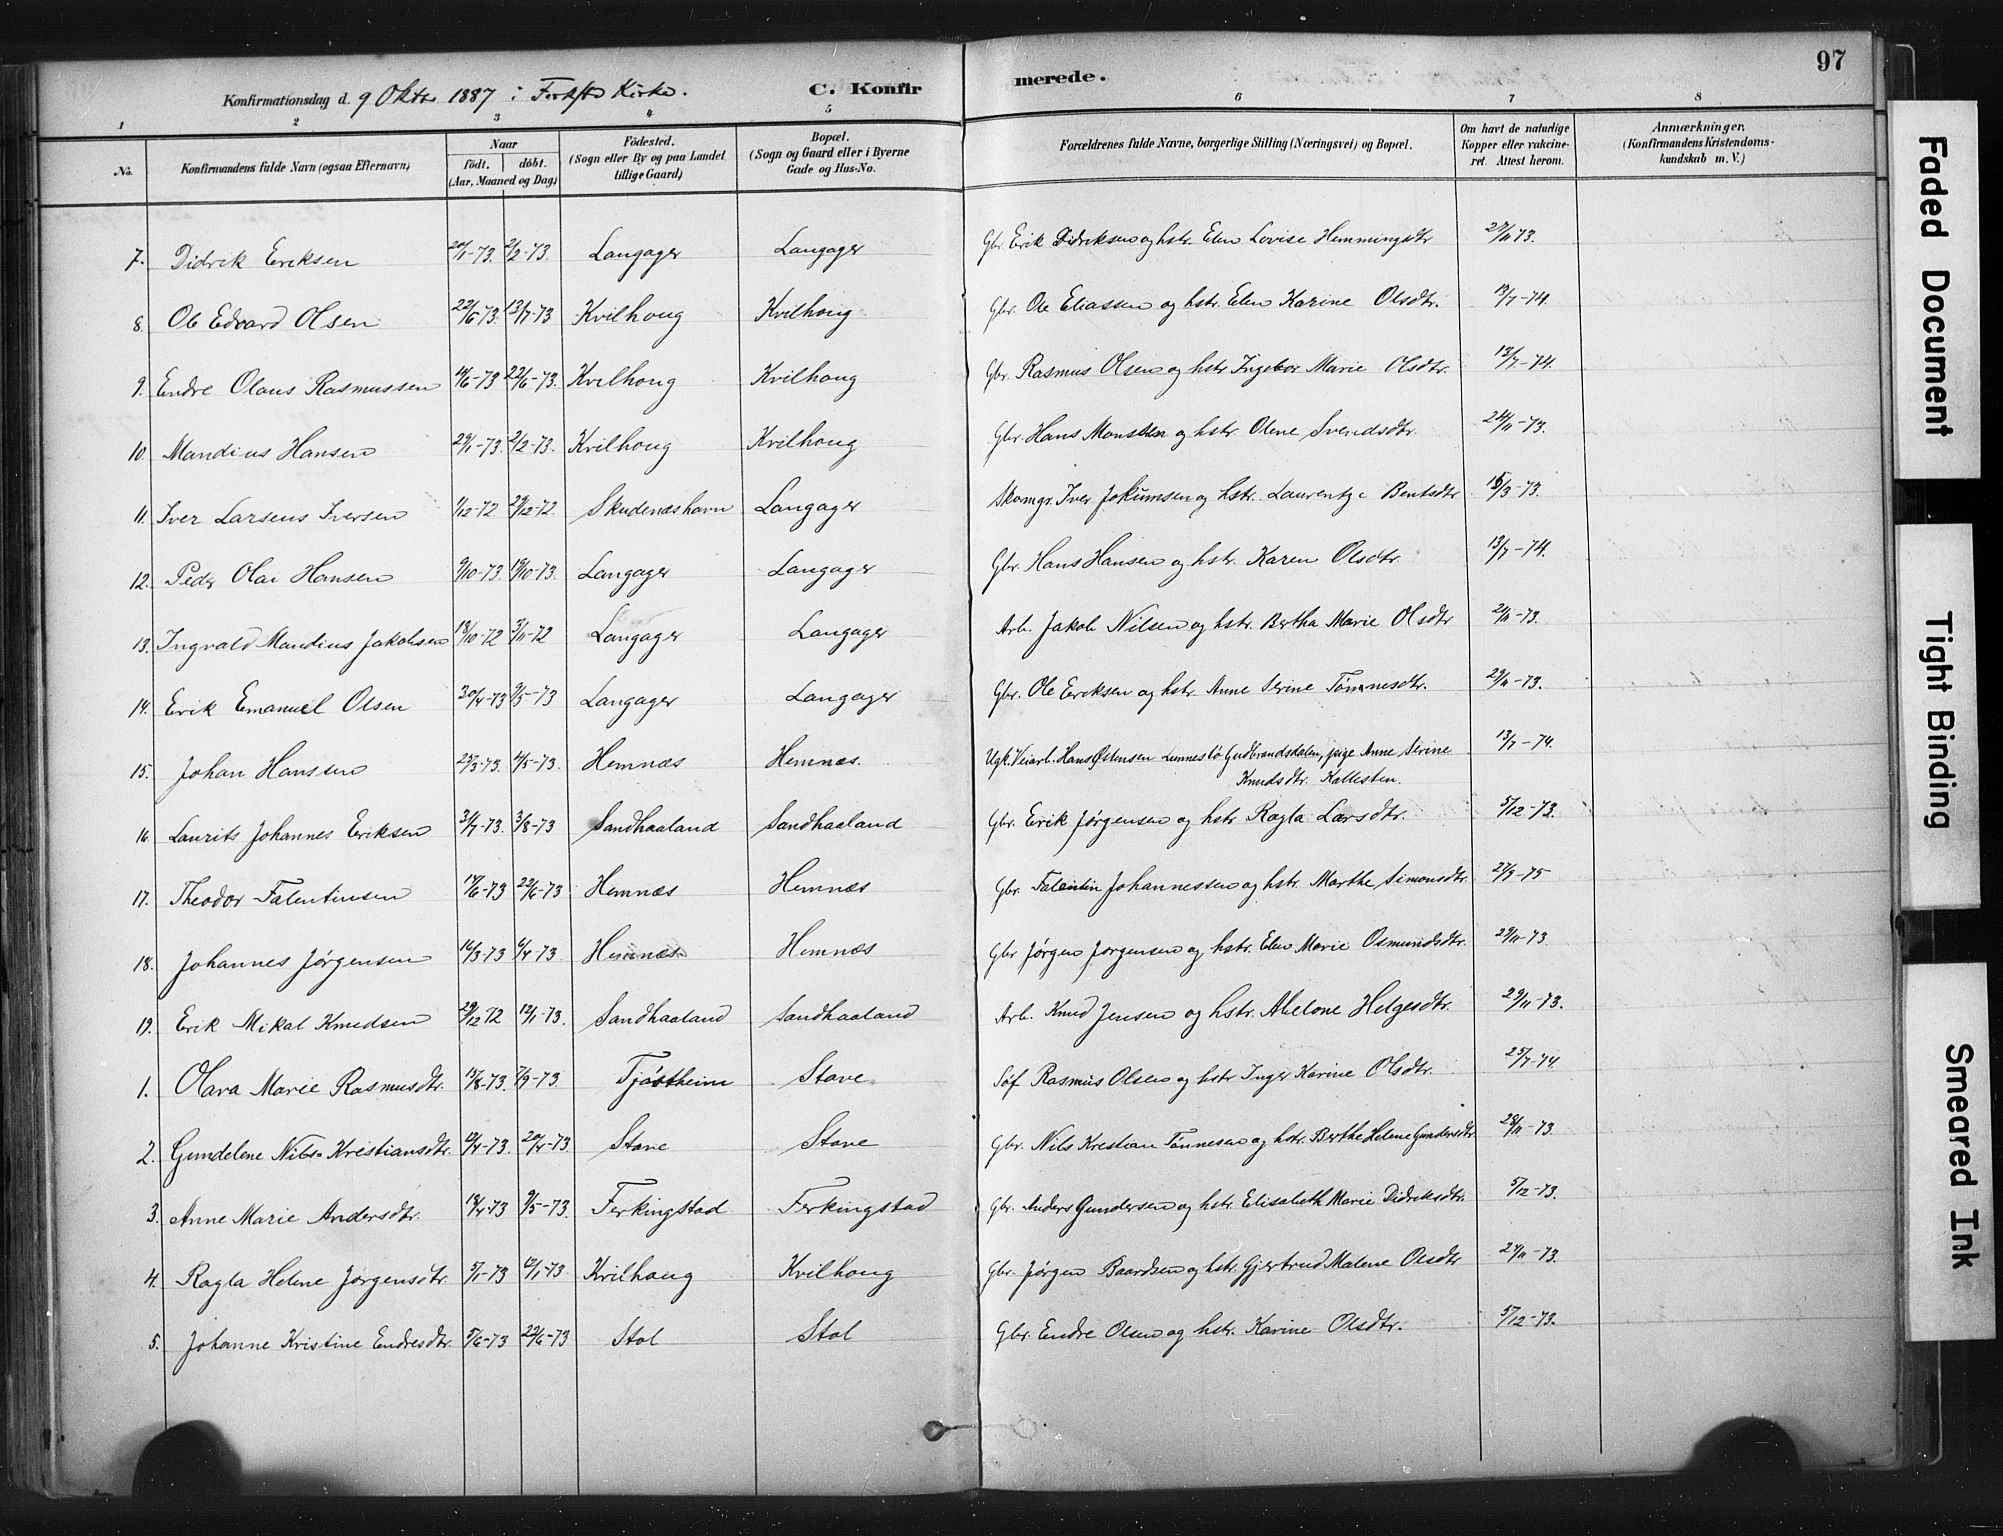 97
Konfirmationsdag d. 9 Oktbr 1887 i Kirke. C. Konfirmerede.
1 2 3 4 5 6 7 8
No. Konfirmandens fulde Navn (ogsaa Efternavn) Naar födt. döbt. (Aar, Maaned og Dag) Födested. (Sogn eller By og paa Landet tillige Gaard) Bopæl. (Sogn og Gaard eller i Byerne Gade og Hus-No. Forældrenes fulde Navne, borgerlige Stilling (Næringsvei) og Bopæl. Om havt de naturlige Kopper eller vakcineret. Attest herom. Anmærkninger. (Konfirmandens Kristendomskundskab m. V.)
7. Didrik Eriksen 2/2-73. Langager Langager Gbr. Erik Didriksen og hstr. Elen Lovise Hemmingsdtr
8. Ole Edvard Olsen 22/6-73. 13/7-73 Kvilhoug Kvilhoug Gbr. Ole Eliassen og hstr. Elen Karine Olsdtr. 13/7-74.
9. Endre Olaus Rasmussen 22/6-73. Kvilhoug Kvilhoug Gbr. Rasmus Olsen og hstr Ingebor Marie Olsdtr. 13/7-74.
10. Mandius Hansen 2/2-73. Kvilhoug Kvilhoug Gbr. Hans Monsen og hstr. Olene Svendsdtr.
11. Iver Larsens Iversen 1/12-72 29/12-72. Skudenæshavn Langager Skomgr. Iver Jokumsen og hstr. Laurentze Bentsdtr
12. Peder Olai Hansen 9/10-73 19/10-73. Langager Langager Gbr. Hans Hansen og hstr. Karen Olsdtr. 13/7-74.
13. Ingvald Mandius Jakobsen 18/10-72 3/11-72 Langager Langager Arb. Jakob Nilsen og hstr. Bertha Marie Olsdtr
14. Erik Emanuel Olsen 30/4-73 Langager Langager Gbr. Ole Eriksen og hstr. Anne Serine Tönnesdtr. 29/11-73.
15. Johan Hansen Hemnæs Hemnæs. Ugk. Veiarb. Hans Østensen Gudbrandsdalen, pige Anne Serine Knudsdtr. Kallesten. 13/7-74.
16. Laurits Johannes Eriksen 3/8-73 Sandhaaland Sandhaaland Gbr. Erik Jørgensen og hstr Ragla Larsdtr. 5/12-73.
17. Theodor Falentinsen 22/6-73 Hemnæs Hemnæs Gbr. Falentin Johannessen og hstr. Marthe Simonsdtr.
18. Johannes Jørgensen 16/3-73 6/4-73. Hemnæs Hemnæs Gbr Jørgen Jørgensen og hstr. Elen Marie Osmundsdtr. 29/11-73.
19. Erik Mikal Knudsen 29/12-72 12/1-73. Sandhaaland Sandhaaland Arb. Knud Jensen og hstr. Abelone Helgesdtr. 29/11-73.
1. Olava Marie Rasmusdtr. 7/9-73. Tjöstheim Stave Söf Rasmus Olsen og hstr Inger Karine Olsdtr. 25/7-74.
2. Gundelene Nils-Kristiansdtr. 20/4-73. Stave Stave Gbr. Nils Kristian Tönnesen og hstr. Berthe Helene Gundersdtr 28/11-73.
3. Anne Marie Andersdtr. 9/5-73. Ferkingstad Ferkingstad Gbr. Anders Gundersen og hstr. Elisabeth Marie Didriksdtr. 5/12-73.
4. Ragla Helene Jørgensdtr. 5/1-73 12/1-73. Kvilhoug Kvilhoug Gbr. Jørgen Baardsen og hstr. Gjertrud Malene Olsdtr
5. Johanne Kristine Endresdtr. 5/6-73 22/6-73 Stol Stol Gbr. Endre Olsen og hstr. Karine Olsdtr. 5/12-73.
Faded Document
Tight Binding
Smeared Ink